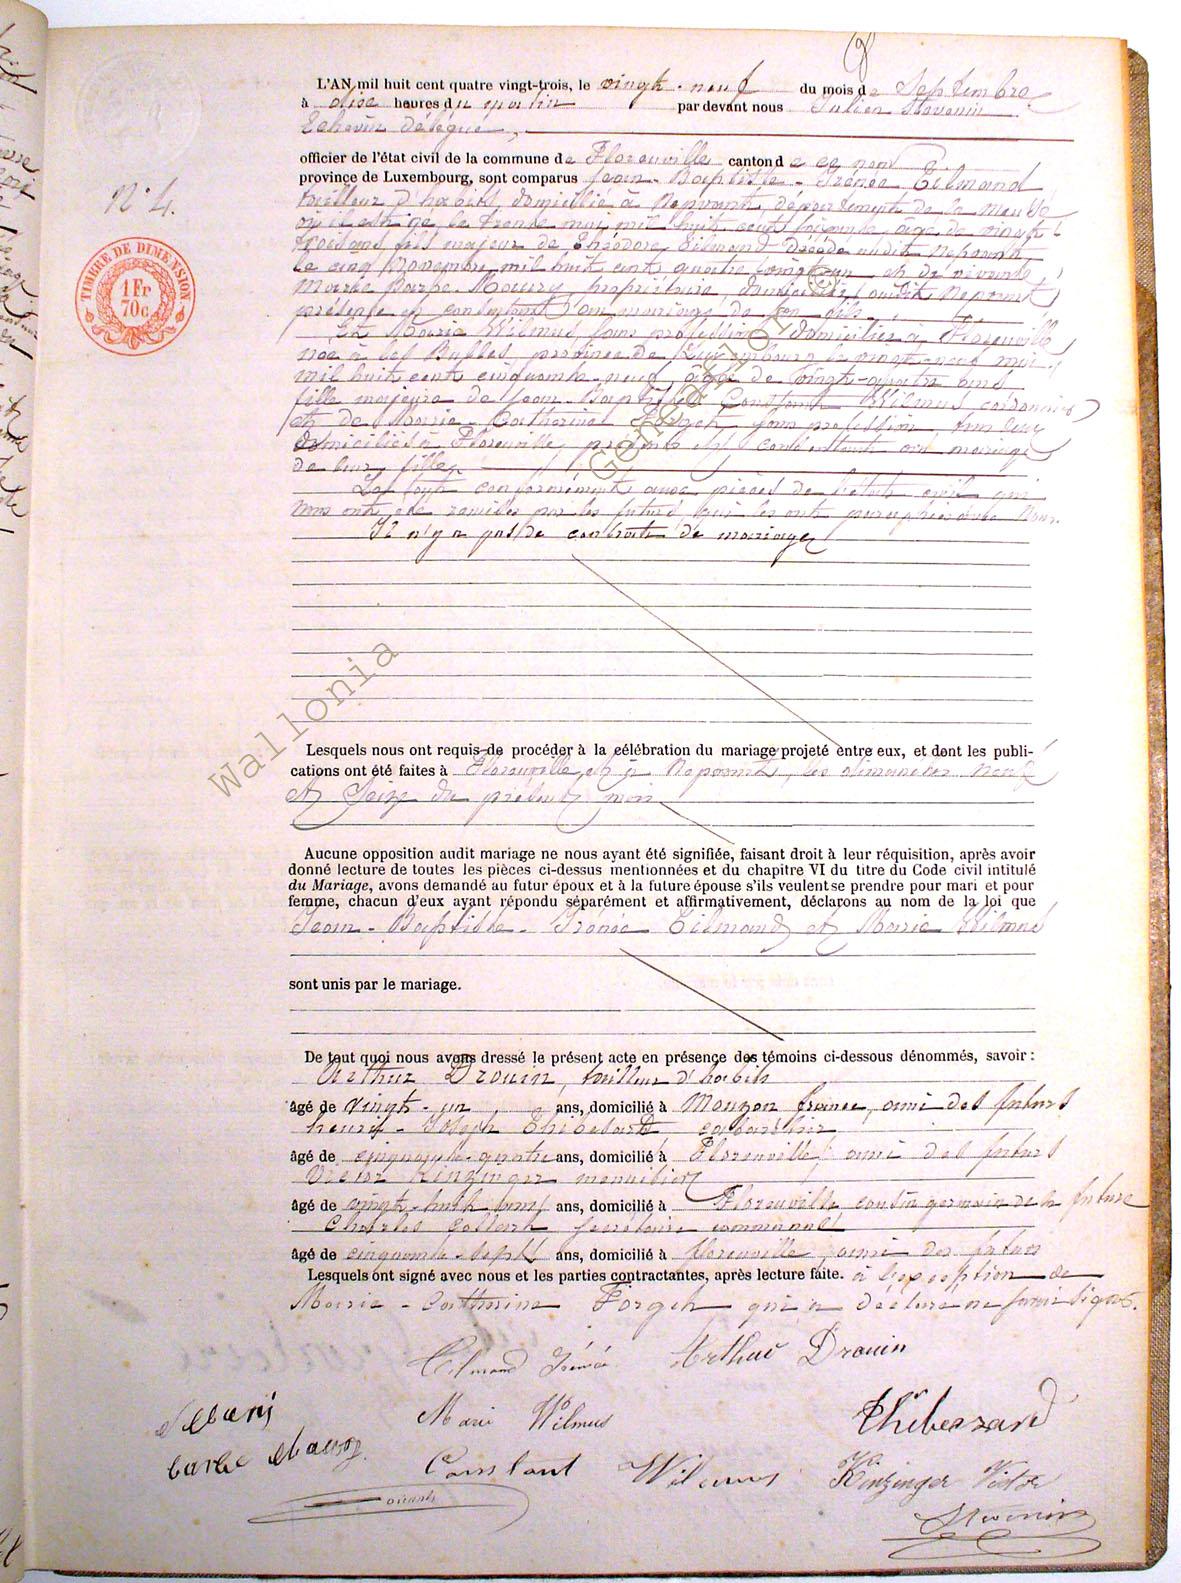 L'AN mil huit cent quatre vingt-trois, le vingt-neuf du mois de Septembre
à dix heures du matin par devant nous Julien Stevenin
Echevin délégué,
officier de l'état civil de la commune de Florenville canton de ce nom
N° 4.
province de Luxembourg, sont comparus Jean-Baptiste-Irénée Tilmand
tailleur d'habits, domicilié à Nepvant, département de la Meuse
où il est né le trente mai mil huit cent soixante, âgé de vingt
trois ans, fils majeur de Théodore Tilmand décédé audit Nepvant
TIMBRE DE DIMENSION
1 Fr
70 c
le cinq Novembre mil huit cent quatre vingt un et de vivante
Marie Barbe Maury propriétaire, domiciliée audit Nepvant
présente et consentant au mariage de son fils.
et Marie Wilmus sans profession domiciliée à Florenville
née à les Bulles, province de Luxembourg le vingt-neuf mai
mil huit cent cinquante-neuf, âgée de vingt-quatre ans
fille majeure de Jean-Baptiste Constant Wilmus cordonnier
et de Marie-Catherine Forgeh, sans profession, tous deux
domiciliés à Florenville, présents et consentant au mariage
de leur fille
Le tout conformément aux pièces de l'état civil qui
nous ont été remises par les futurs qui les ont paraphées avec Nous.
Il n'y a pas de contrat de mariage
Wallonia Genealogie ©
Lesquels nous ont requis de procéder à la célébration du mariage projeté entre eux, et dont les publi-
cations ont été faites à Florenville et à Nepvant, les dimanches neuf
et Seize du présent mois
Aucune opposition audit mariage ne nous ayant été signifiée, faisant droit à leur réquisition, après avoir
donné lecture de toutes les pièces ci-dessus mentionnées et du chapitre VI du titre du Code civil intitulé
du Mariage, avons demandé au futur époux et à la future épouse s'ils veulent se prendre pour mari et pour
femme, chacun d'eux ayant répondu séparément et affirmativement, déclarons au nom de la loi que
Jean-Baptiste-Irénée Tilmand et Marie Wilmus
sont unis par le mariage.
De tout quoi nous avons dressé le présent acte en présence des témoins ci-dessous dénommés, savoir :
Arthur Drouin, tailleur d'habits
âgé de vingt-un ans, domicilié à Mouzon france, ami des futurs
henri-Joseph Thibesard cabaretier
âgé de cinquante-quatre ans, domicilié à Florenville, ami des futurs
Victor Kinzinger menuisier
âgé de vingt-huit ans, ans, domicilié à Florenville cousin germain de la future
Charles Collart secrétaire communal
âgé de cinquante-sept ans, domicilié à florenville, ami des futurs
Lesquels ont signé avec nous et les parties contractantes, après lecture faite. à l'exception de
Marie-Catherine Forgeh qui a déclaré ne savoir signer.
Tilmand Irénée Arthur Drouin
Marie Wilmus Thibessard
barbe Maury
Constant Wilmus Kinzinger Victor
Stevenin